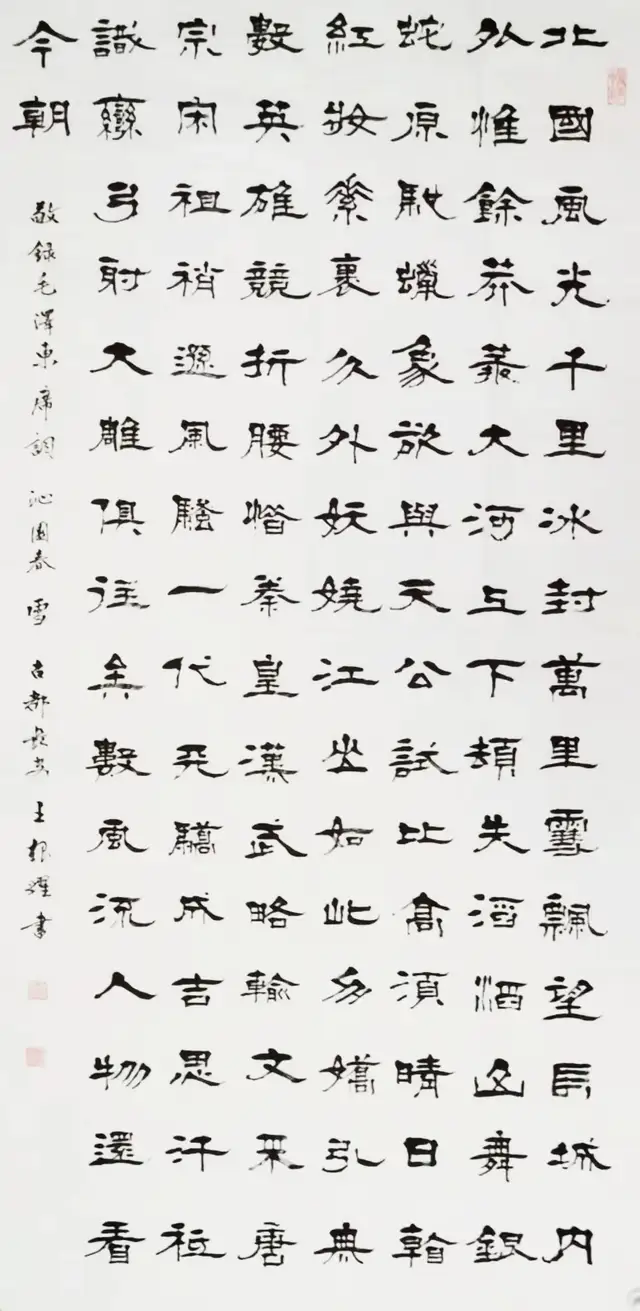 北國風光千里冰封萬里雪飄望長城内
外惟餘莽莽大河上下頓失滔滔山舞銀
蛇原馳蠟象欲與天公試比高須晴日看
紅妝素裹分外妖嬈江山如此多嬌引無
數英雄競折腰惜秦皇漢武略輸文采唐
宗宋祖稍遜風騷一代天驕成吉思汗祗
識彎弓射大雕俱往矣數風流人物還看
今朝
敬録毛澤東席詞 沁園春 雪 古都長安 王根 書